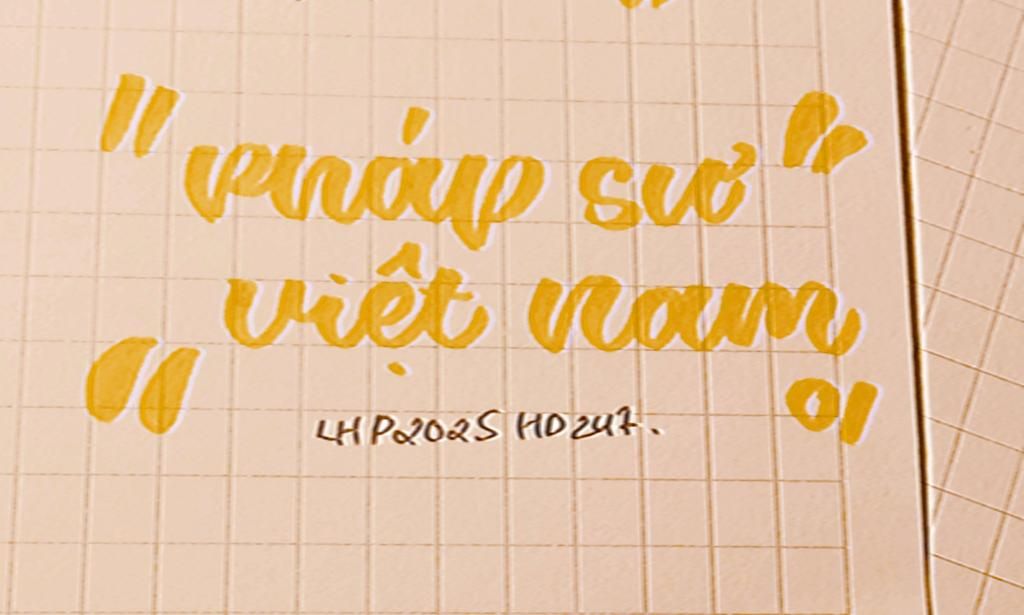 " pháp sư "
việt nam
LHP2025 HD247.